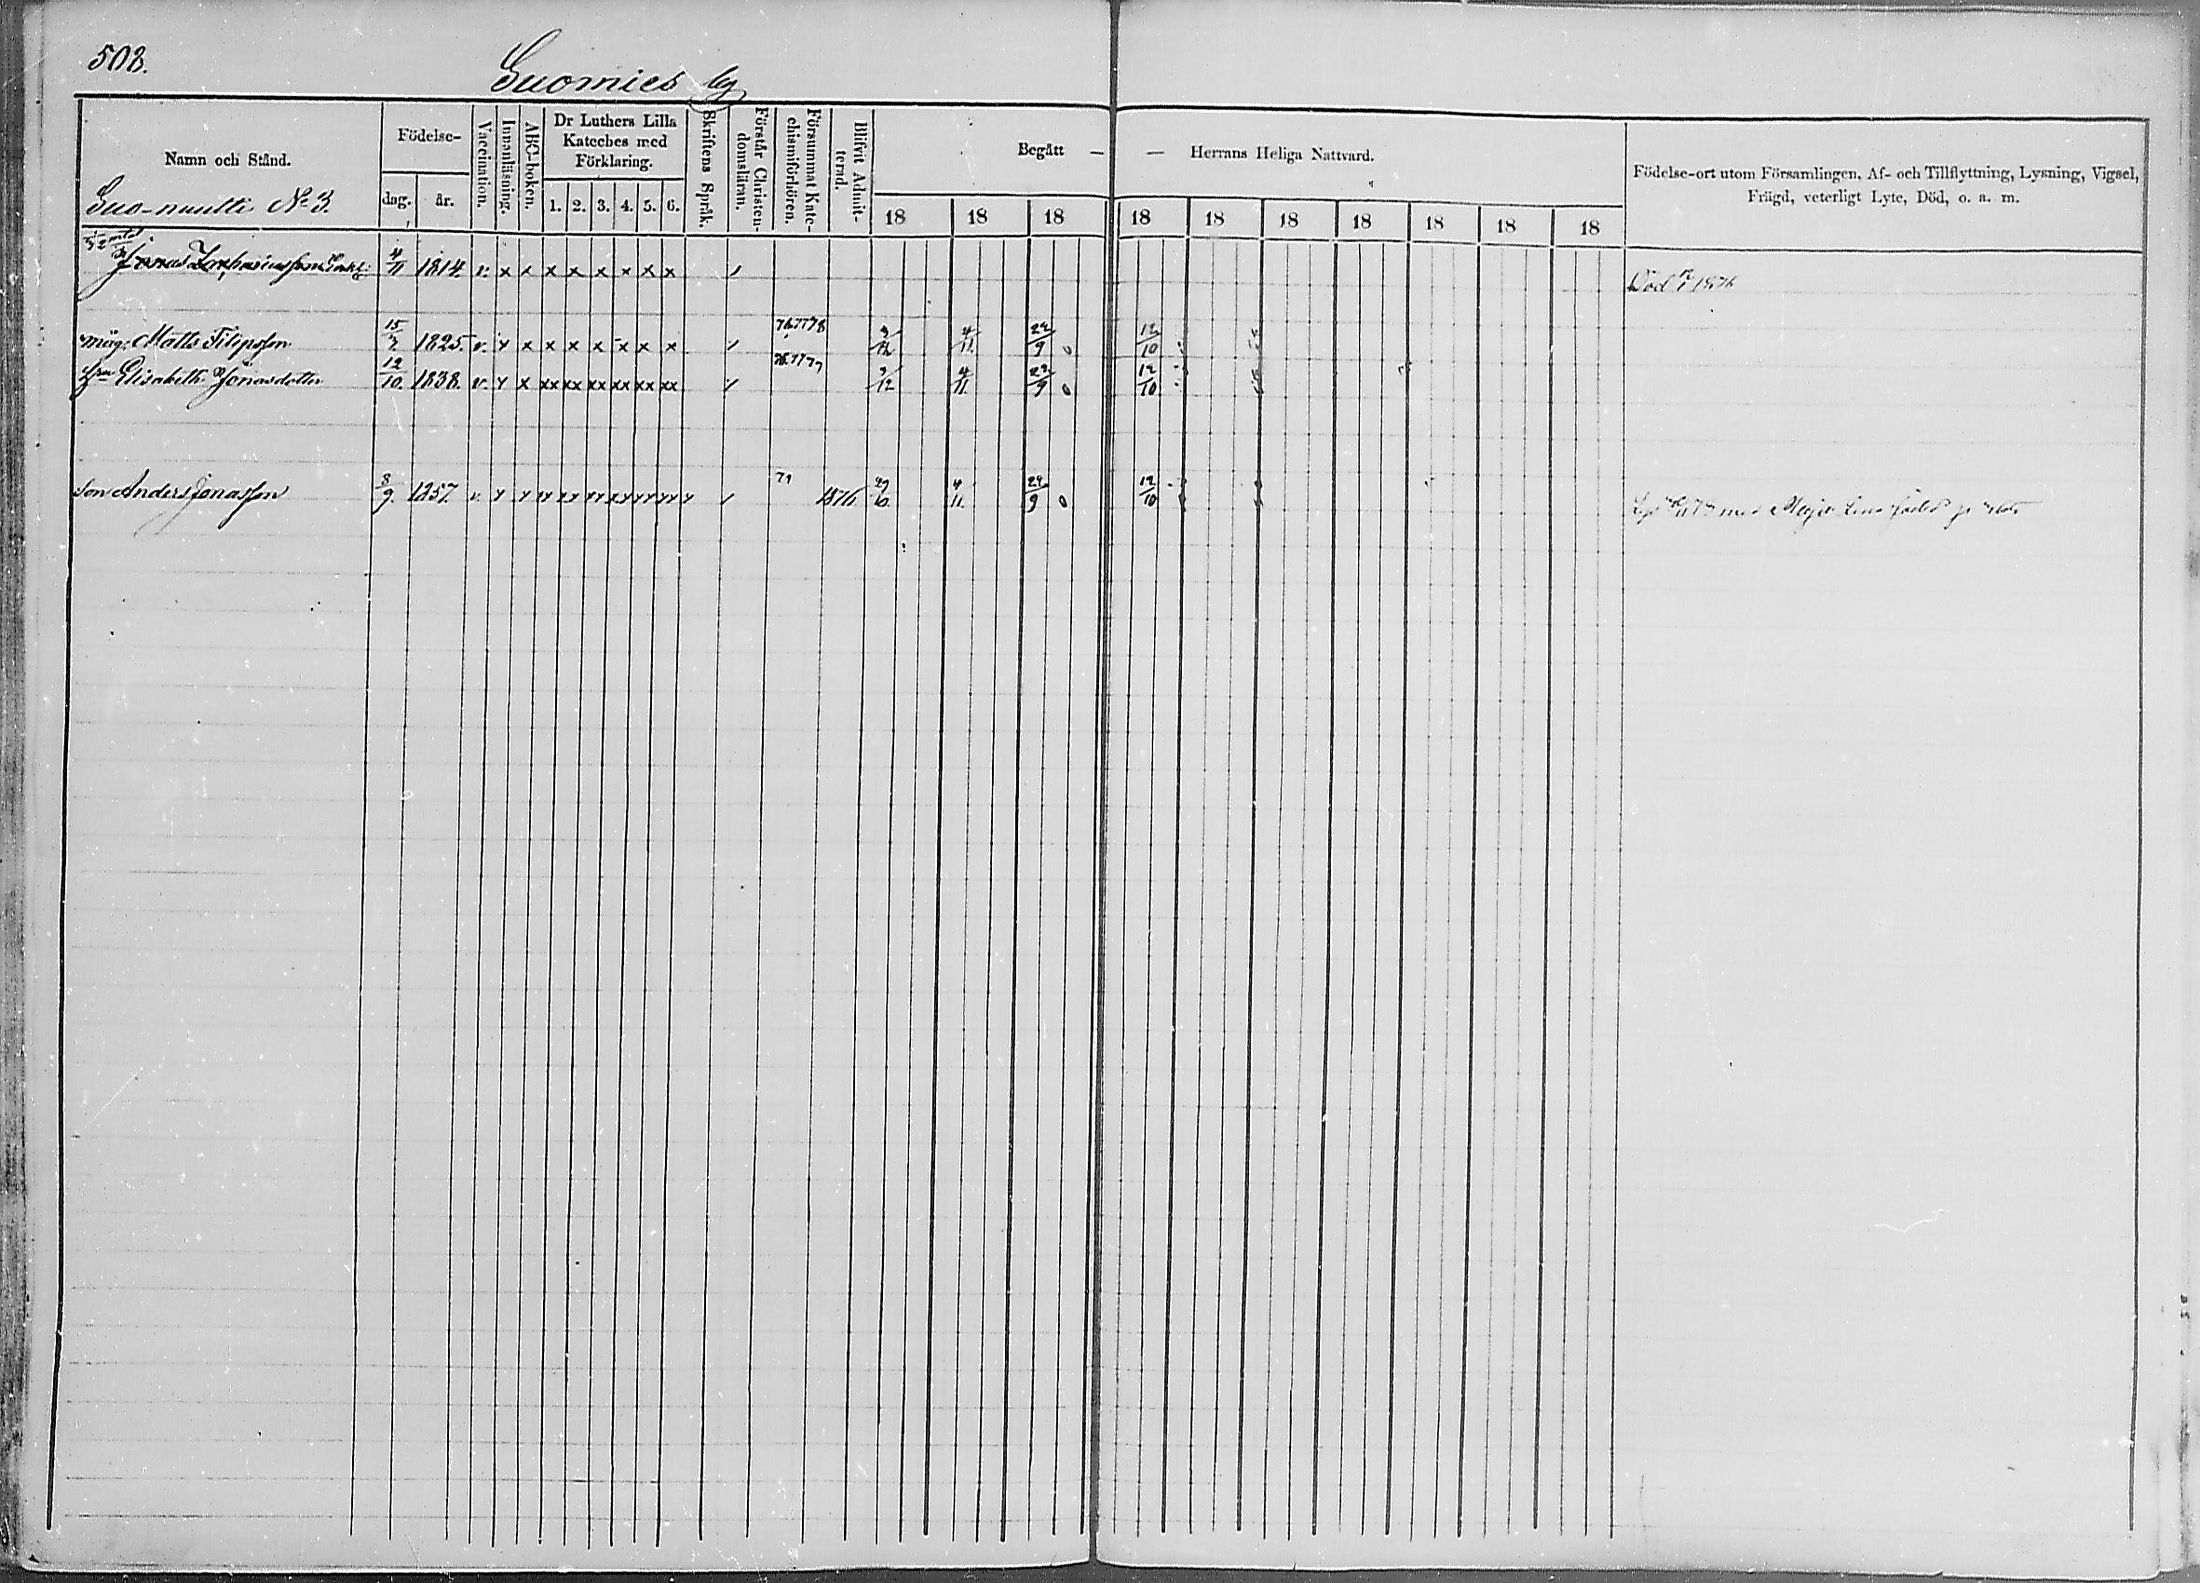 508.
Suomies by
Namn och Stånd.
Födelse-
dag. år.
Vaccination.
Innanläsning.
ABC-boken.
Dr Luthers Lilla
Kateches med
Förklaring.
1. 2. 3. 4. 5. 6.
Skriftens Språk.
Förstår Christen-
domsläran.
Försummat Kate-
chismiförhören.
Blifvit Admit-
terad.
Begått — — Herrans Heliga Nattvard.
18 18 18 18 18 18 18 18 18 18
Födelse-ort utom Församlingen, Af- och Tillflyttning, Lysning, Vigsel,
Frägd, veterligt Lyte, Död, o. a. m.
No 3.
Jonas 4/11 1814. v. x x x x x x x x /
Död
måg. Matts Filipsson 15/7 1825. v. x x x x x x x x / 76.77 78 4/11 29/9 o 12/10
Elisabeth Jonasdotter 12/10 1838. v. x x xx xx xx xx xx xx / 9/12 4/11 29/9 o 12/10
Son Anders Jonasson 8/9 1857. v. x x xx xx xx xx xx xx x / 79 4/11 29/9 o 12/10
med